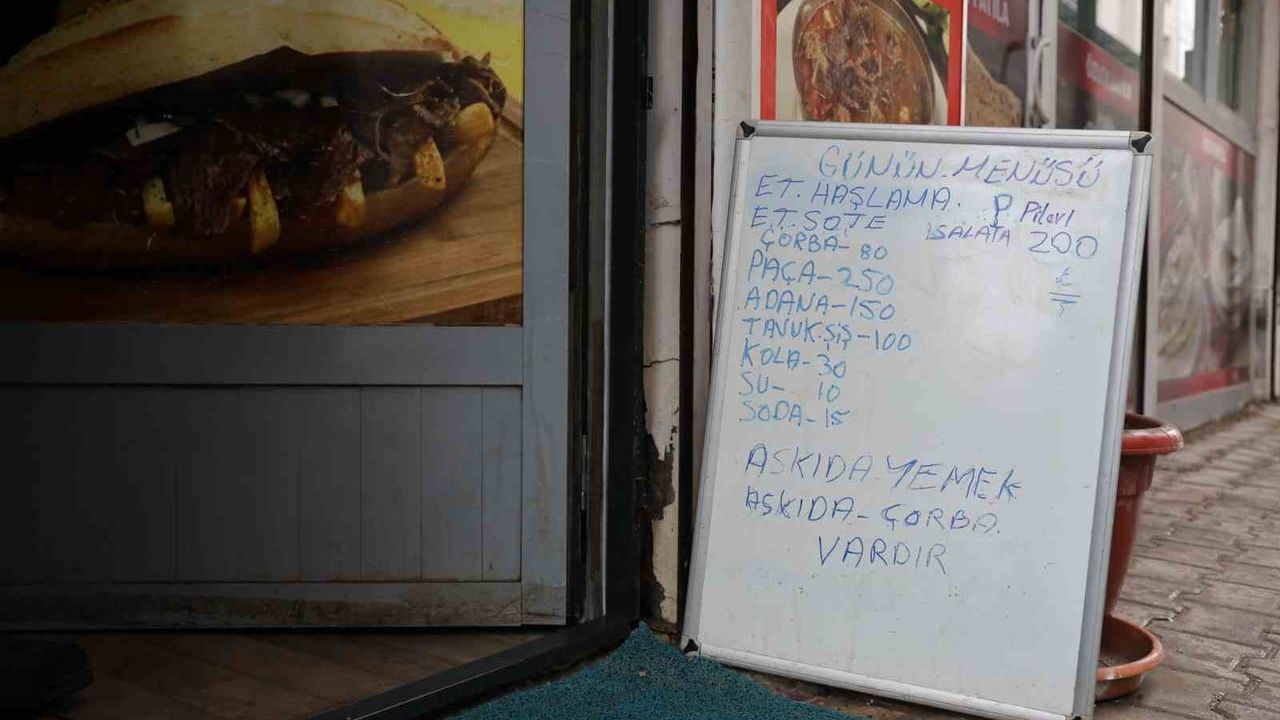 GÜNÜN. MENÜSÜ
ET. HAŞLAMA. P Pilavı
ET. SOTE SALATA 200
ÇORBA- 80
PAÇA-250
ADANA-150
TAVUK.ŞİŞ-100
KOLA-30
SU- 10
SODA-15
ASKIDA YEMEK
ASKIDA-ÇORBA.
VARDIR